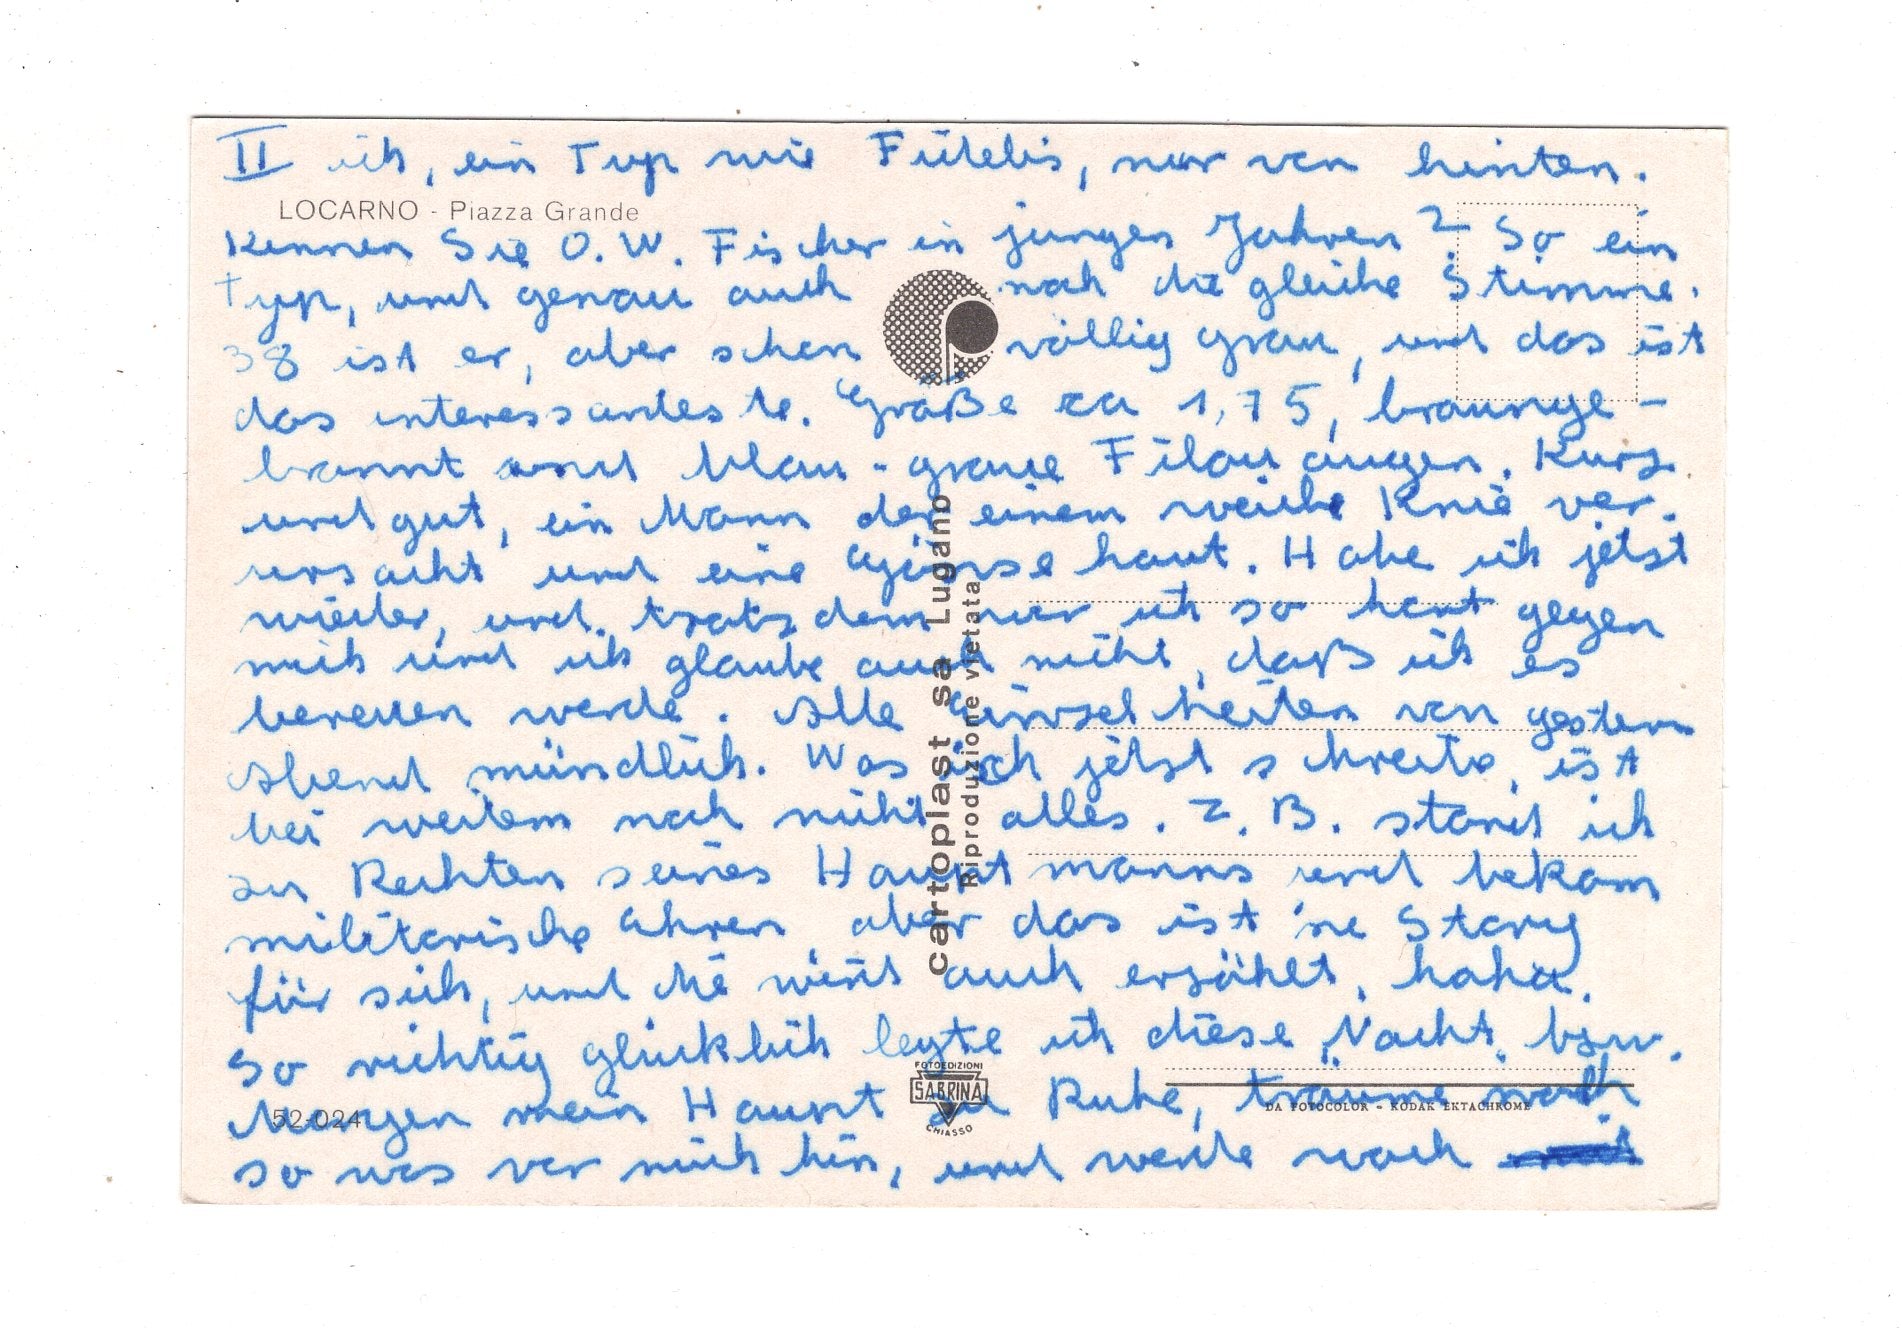 II ich, ein Typ wie Fidelis, nur von hinten.
LOCARNO - Piazza Grande
Kennen Sie O.W. Fischer in jungen Jahren? So ein
Typ, und genau auch noch die gleiche Stimme.
38 ist er, aber schon völlig grau, und das ist
das interessanteste. Größe ca 1,75, braunge-
brannt und blau-graue augen. Kurz
und gut, ein Mann der einem weiche Knie ver-
ursacht und eine Gänsehaut. Habe ich jetzt
wieder, und trotzdem war ich so hart gegen
mich und ich glaube auch nicht, daß ich es
bereuen werde. Alle Einzelheiten von gestern
Abend mündlich. Was ich jetzt schreibe, ist
bei weitem noch nicht alles. Z.B. stand ich
zu Rechten seines Hauptmanns und bekam
militärische Ehren, aber das ist 'ne Story
für sich, und die wird auch erzählt, haha.
So richtig glücklich legte ich diese Nacht bzw.
Morgen mein Haupt zu Ruhe, träume noch
so was vor mich hin, und werde wach
cartoplast sa Lugano
Riproduzione vietata
52-024
FOTOEDIZIONI
SABRINA
CHIASSO
DA FOTOCOLOR - KODAK EKTACHROME